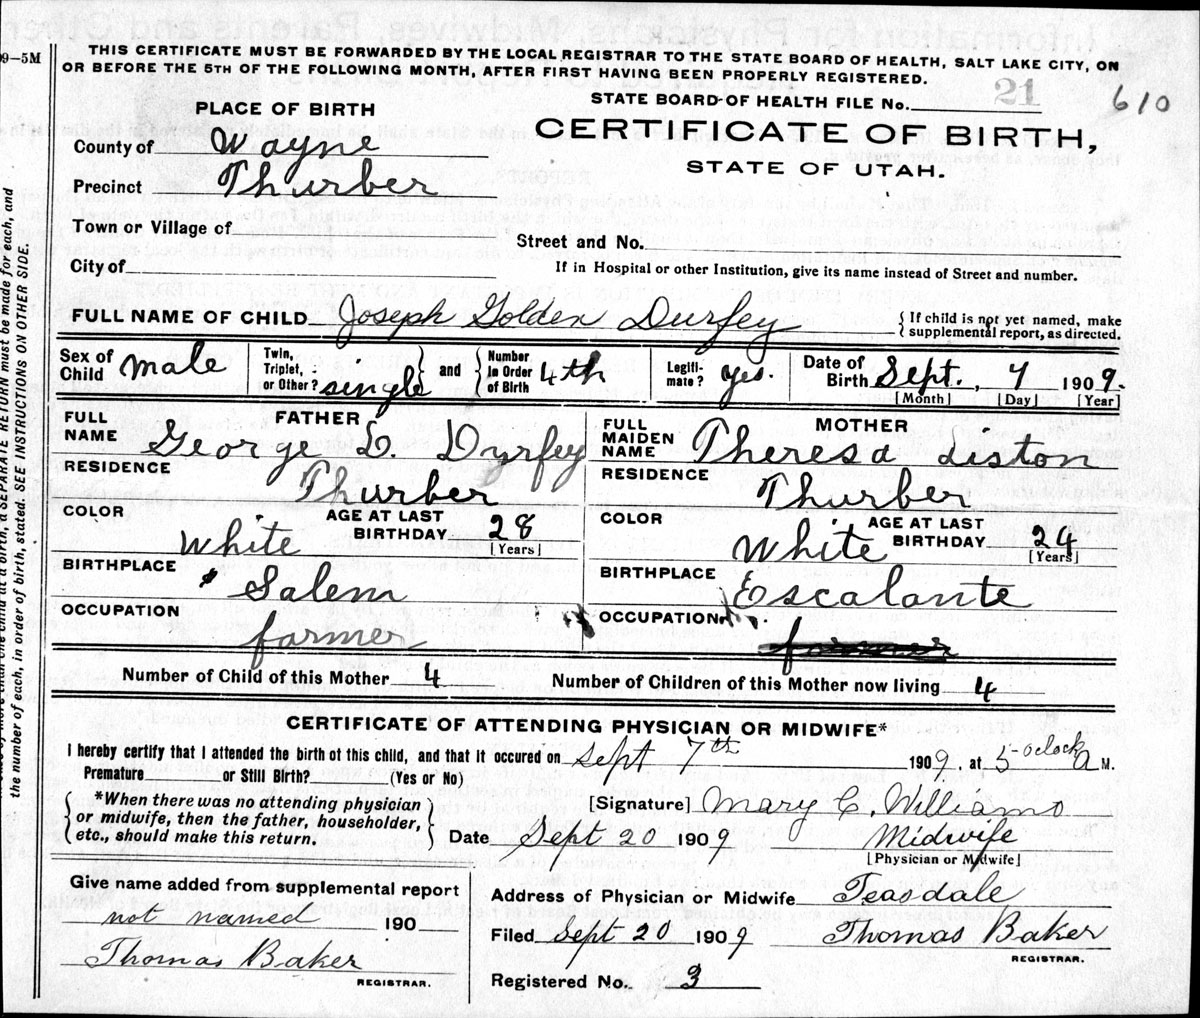 09—5M
THIS CERTIFICATE MUST BE FORWARDED BY THE LOCAL REGISTRAR TO THE STATE BOARD OF HEALTH, SALT LAKE CITY, ON
OR BEFORE THE 5TH OF THE FOLLOWING MONTH, AFTER FIRST HAVING BEEN PROPERLY REGISTERED.
STATE BOARD OF HEALTH FILE No. 21 610
PLACE OF BIRTH
CERTIFICATE OF BIRTH,
STATE OF UTAH.
County of Wayne
Precinct Thurber
Town or Village of
Street and No.
City of
If in Hospital or other Institution, give its name instead of Street and number.
FULL NAME OF CHILD Joseph Golden Durfey { If child is not yet named, make
supplemental report, as directed.
Sex of Child male Twin, Triplet, or Other? single } and { Number in Order of Birth 4th Legiti-mate? yes. Date of Birth Sept. 7 1909.
[Month] [Day] [Year]
FATHER
FULL NAME George D. Dyrfey
RESIDENCE
Thurber
COLOR White AGE AT LAST BIRTHDAY 28
[Years]
BIRTHPLACE
Salem
OCCUPATION
farmer
MOTHER
FULL MAIDEN NAME Theresa Liston
RESIDENCE
Thurber
COLOR White AGE AT LAST BIRTHDAY 24
[Years]
BIRTHPLACE
Escalante
OCCUPATION
farmer
Number of Child of this Mother 4 Number of Children of this Mother now living 4
CERTIFICATE OF ATTENDING PHYSICIAN OR MIDWIFE*
I hereby certify that I attended the birth of this child, and that it occured on Sept 7th 1909, at 5 oclock A M.
Premature or Still Birth? (Yes or No)
{ *When there was no attending physician
or midwife, then the father, householder,
etc., should make this return. }
[Signature] Mary C. Williams
Date Sept 20 1909 Midwife
[Physician or Midwife]
Give name added from supplemental report
not named 190
Thomas Baker
REGISTRAR.
Address of Physician or Midwife Teasdale
Filed Sept 20 1909 Thomas Baker
REGISTRAR.
Registered No. 3
a SEPARATE RETURN must be made for each, and
the number of each, in order of birth, stated. SEE INSTRUCTIONS ON OTHER SIDE.